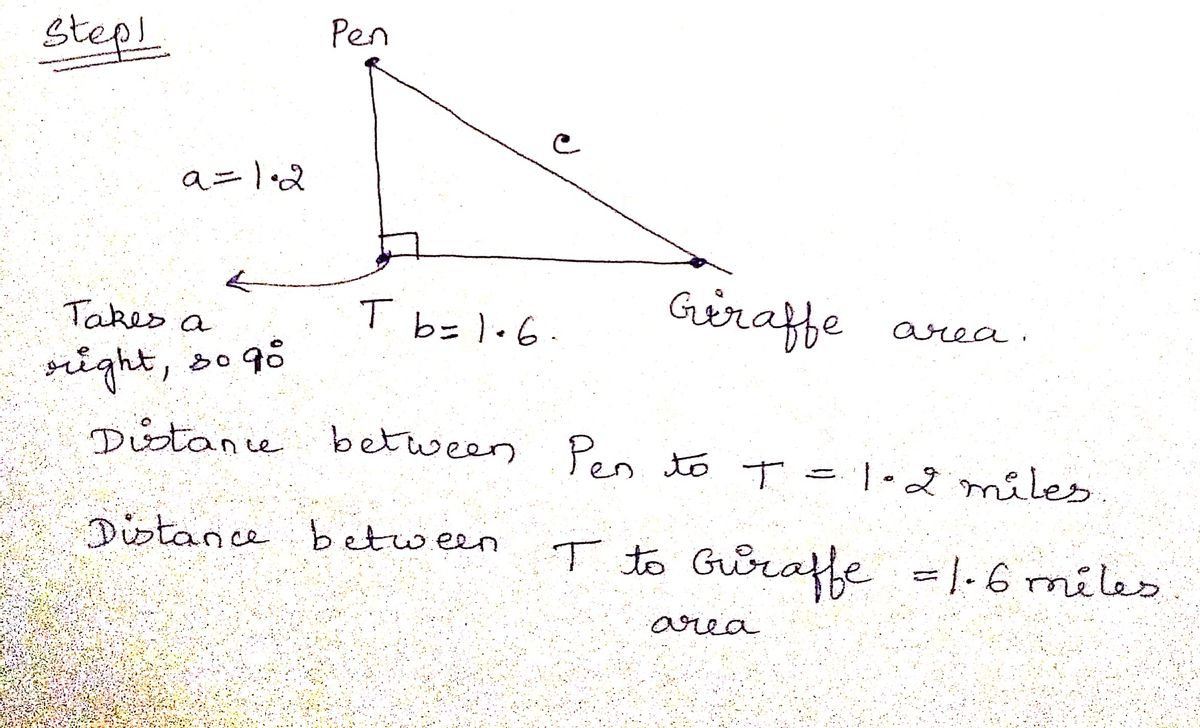 Step1
Pen
c
a=1.2
T
b=1.6.
Giraffe area.
Takes a
right, so 90°
Distance between Pen to T = 1.2 miles.
Distance between T to Giraffe = 1.6 miles.
area